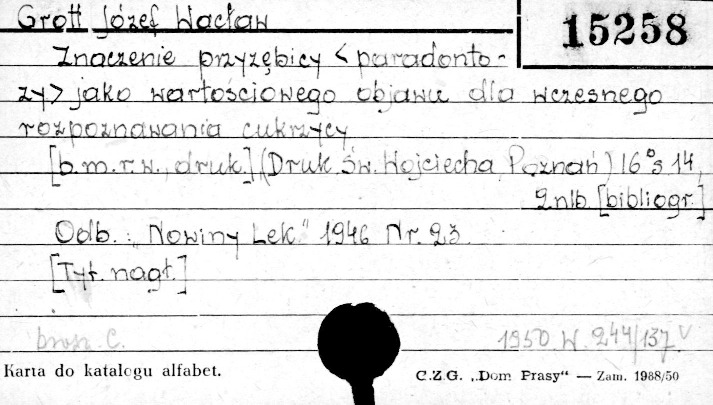 Grott Józef Wacław
15258
Znaczenie przyzębicy < paradonto-
zy> jako wartościowego objawu dla wczesnego
rozpoznawania cukrzycy
[b.m.r.w., druk.] (Druk. Św. Wojciecha Poznań) 16° s 14,
2 nlb. [bibliogr.]
Odb.: "Nowiny Lek." 1946 Nr. 23.
[Tyt. nagł.]
brosz. C.
1950 W. 244/137 V
Karta do katalogu alfabet.
C.Z.G. „Dom Prasy“ — Zam. 1988/50